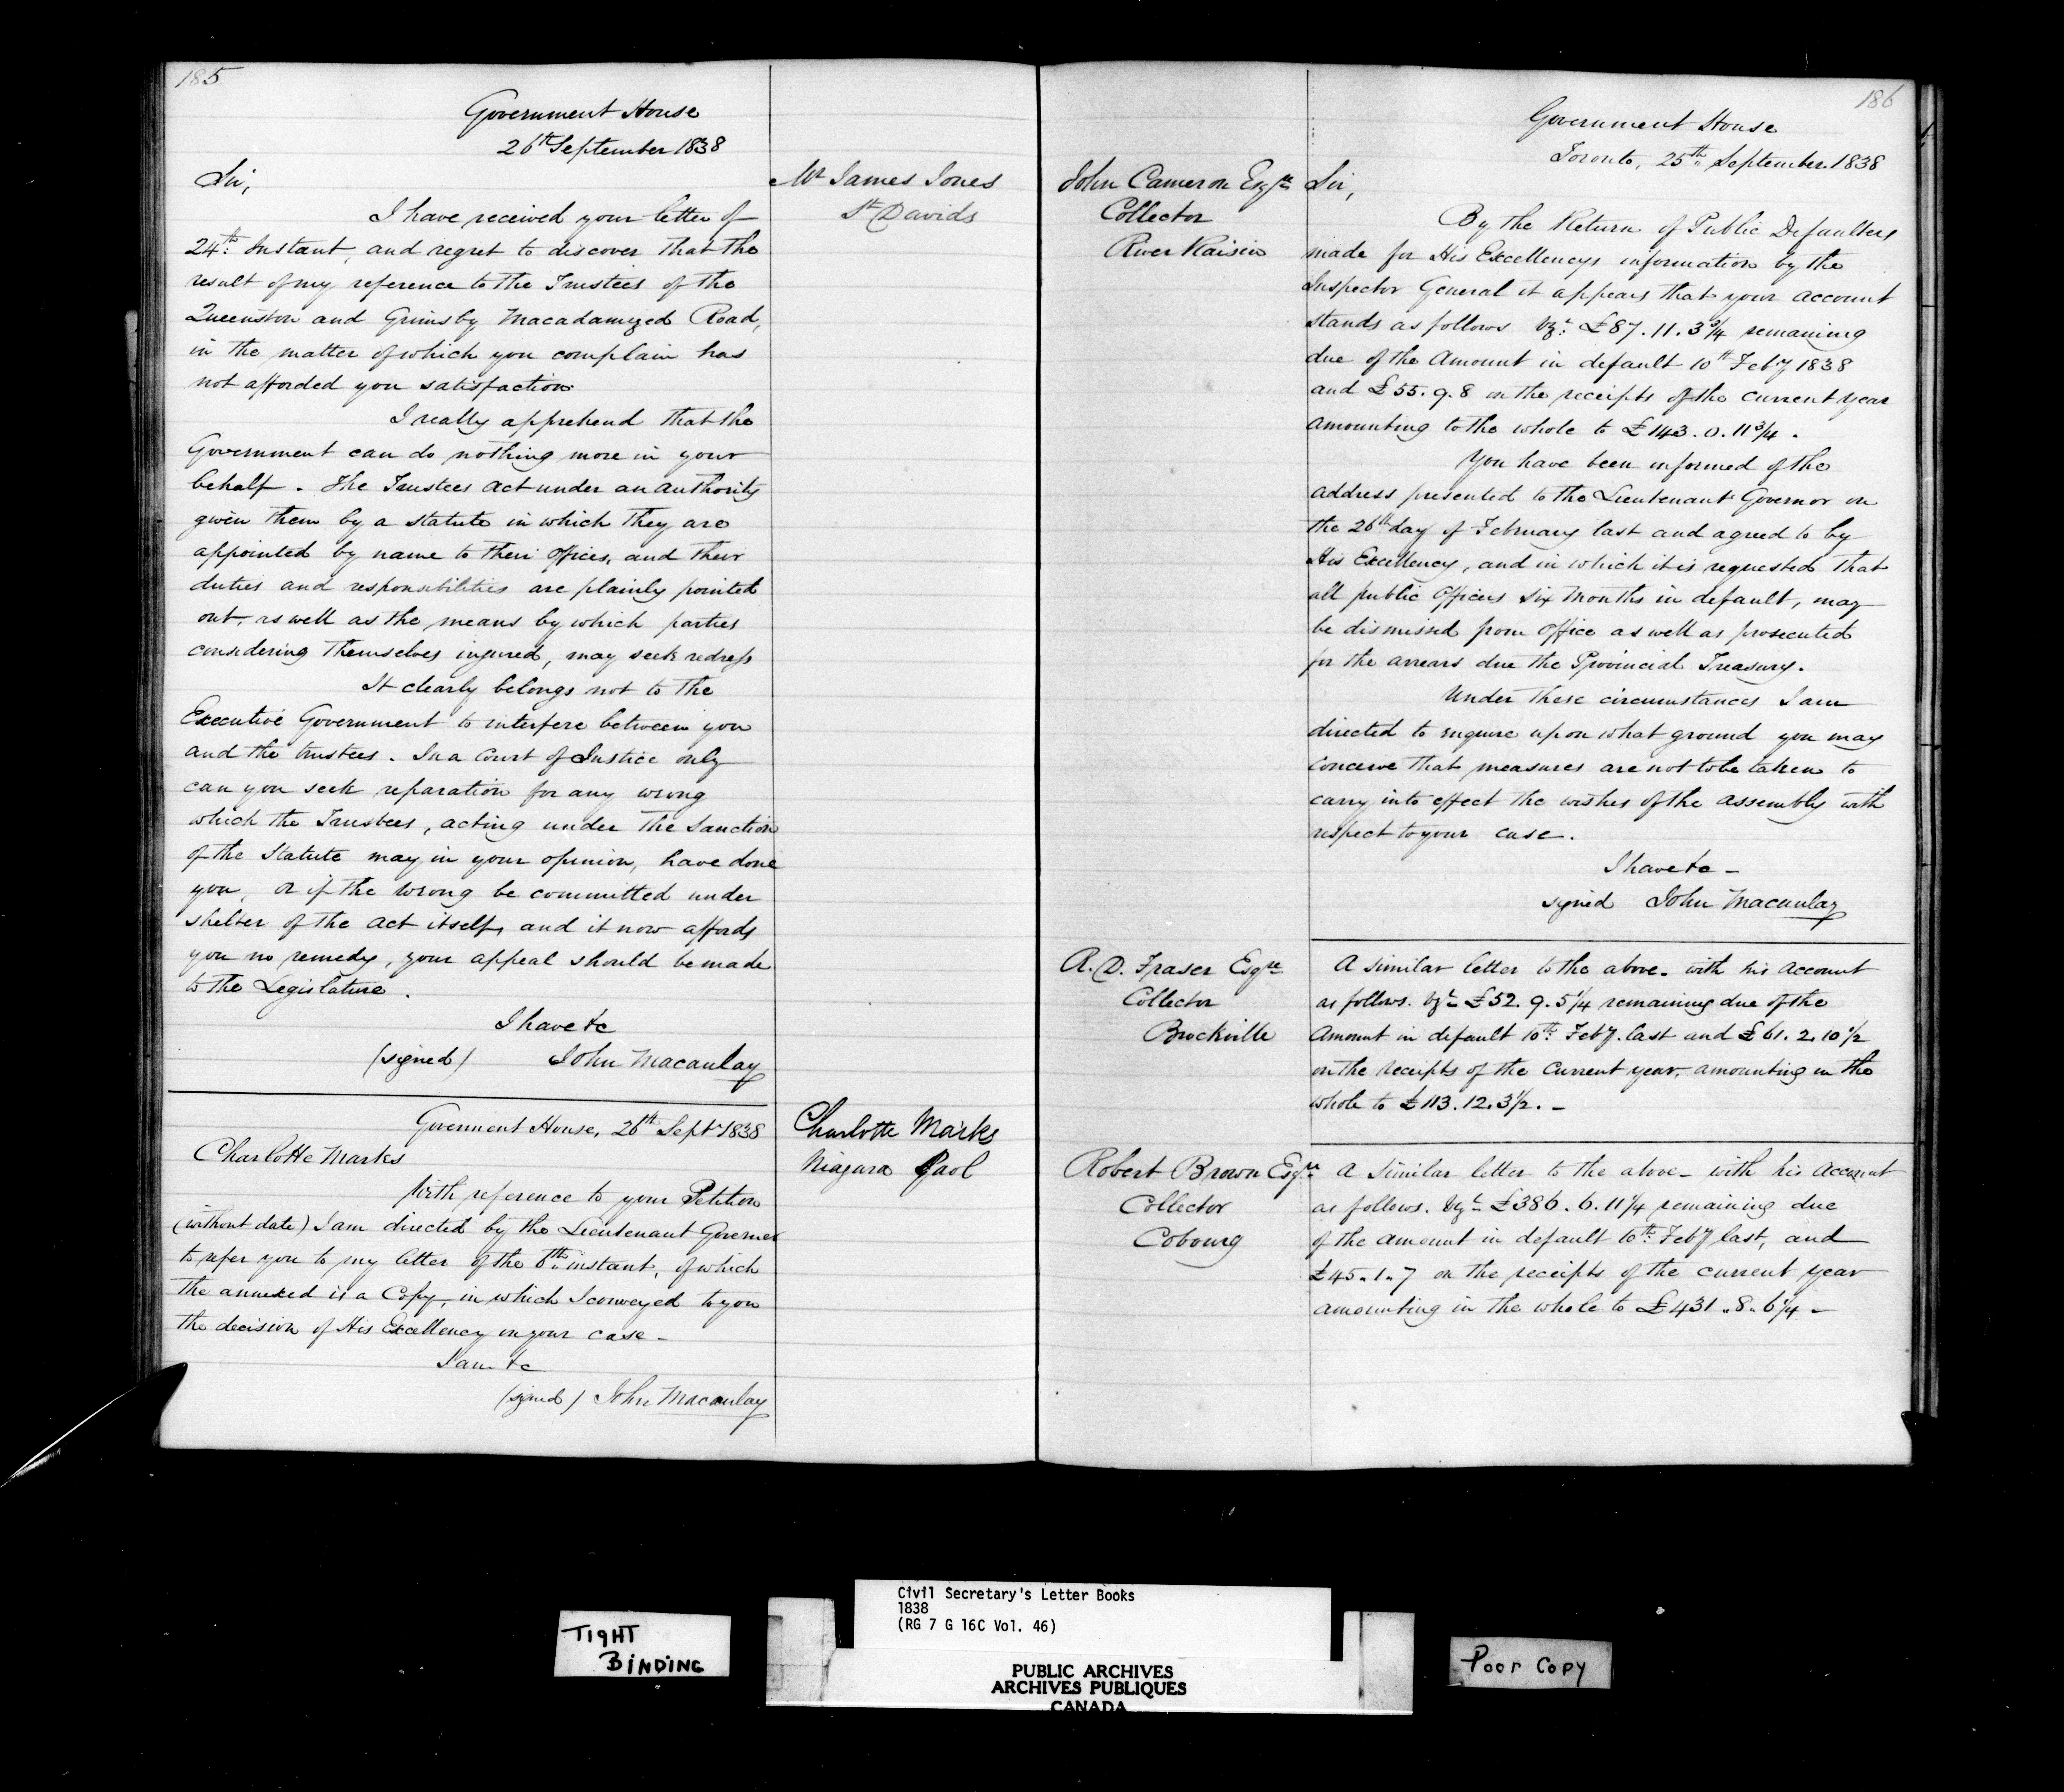 185
Government House
26th September 1838
Mr James Jones
St Davids
Sir,
I have received your letter of
24th: Instant, and regret to discover that the
result of my reference to the Trustees of the
Queenston and Grimsby Macadamized Road,
in the matter of which you complain has
not afforded you satisfaction.
I really apprehend that the
Government can do nothing more in your
behalf. The Trustees act under an authority
given them by a statute in which they are
appointed by name to their offices, and their
duties and responsibilities are plainly pointed
out, as well as the means by which parties
considering themselves injured, may seek redress
It clearly belongs not to the
Executive Government to interfere between you
and the trustees. In a Court of Justice only
can you seek reparation for any wrong
which the Trustees, acting under the Sanction
of the Statute may in your opinion, have done
you, or if the wrong be committed under
shelter of the act itself, and it now affords
you no remedy, your appeal should be made
to the Legislature.
I have &c
(signed) John Macaulay
Goverment House, 26th Sept 1838
Charlotte Marks
Niagara Gaol
Charlotte Marks
With reference to your Petition
(without date) I am directed by the Lieutenant Governor
to refer you to my letter of the 8th instant, of which
the annexed is a Copy, in which I conveyed to you
the decision of His Excellency in your case -
I am &c
(signed) John Macaulay
186
Government House
Toronto, 25th September 1838
John Cameron Esqre
Collector
River Raisin
Sir,
By the Return of Public Defaulters
made for His Excellencys information by the
Inspector General it appears that your account
stands as follows vizt: £87.11.3 3/4 remaining
due of the Amount in default 10th Feby 1838
and £55.9.8 on the receipts of the current year
amounting to the whole to £143.0.11 3/4.
You have been informed of the
address presented to the Lieutenant Governor on
the 26th day of February last and agreed to by
His Excellency, and in which it is requested that
all public Officers six months in default, may
be dismissed from office as well as prosecuted
for the arrears due the Provincial Treasury.
Under these circumstances I am
directed to enquire upon what ground you may
conceive that measures are not to be taken to
carry into effect the wishes of the assembly with
respect to your case.
I have &c -
signed John Macaulay
A. D. Fraser Esqre
Collector
Brockville
A similar letter to the above - with his account
as follows. vizt £52.9.5 1/4 remaining due of the
Amount in default 10th: Feby. last and £61.2.10 1/2
on the receipts of the current year, amounting in the
whole to £113.12.3 1/2. -
Robert Brown Esqre
Collector
Cobourg
A similar letter to the above - with his account
as follows. vizt £386.6.11 1/4 remaining due
of the amount in default 10th: Feby last, and
£45.1.7 on the receipts of the current year
amounting in the whole to £431.8.6 1/4 -
TIGHT
BINDING
Civil Secretary's Letter Books
1838
(RG 7 G 16C Vol. 46)
PUBLIC ARCHIVES
ARCHIVES PUBLIQUES
CANADA
Poor Copy